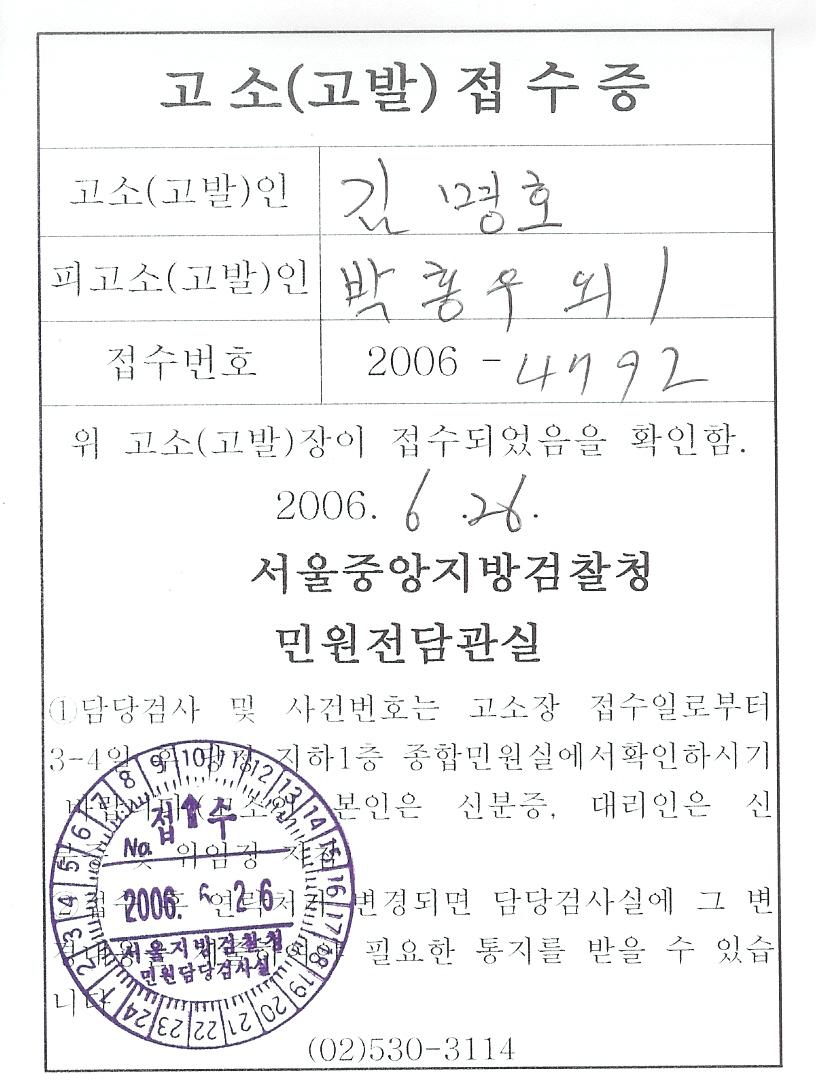 고 소(고발) 접 수 증
고소(고발)인 김 명호
피고소(고발)인 박 홍우 외 1
접수번호 2006 - 4792
위 고소(고발)장이 접수되었음을 확인함.
2006. 6 .26.
서울중앙지방검찰청
민원전담관실
①담당검사 및 사건번호는 고소장 접수일로부터
3-4일 지하1층 종합민원실에서확인하시기
본인은 신분증, 대리인은 신
및 위임장
변경되면 담당검사실에 그 변
필요한 통지를 받을 수 있습
니다
(02)530-3114
접 수
No.
2006. 6 26
서울지방검찰청
민원담당검사실
1 2 3 4 5 6 7 8 9 10 11 12 13 14 15 16 17 18 19 20 21 22 23 24